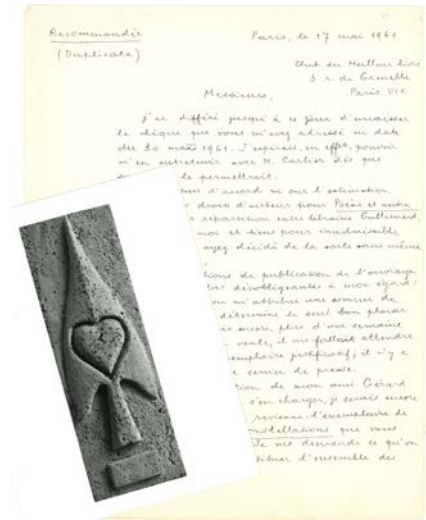 Recommandée
(Duplicata)
Paris, le 17 mai 1961.
Club du Meilleur Livre
3 r. de Grenelle
Paris VIe
Messieurs,
J'ai différé jusqu'à ce jour d'encaisser
le chèque que vous m'avez adressé en date
du 30 mars 1961. J'espérais, en effet, pouvoir
m'en entretenir avec M. Carlier dès que
le permettrait.
d'accord ni sur l'estimation
droits d'auteur pour Poésie et autre
répartition entre librairie Gallimard,
moi et tiens pour inadmissible
ayez décidé de la sorte sans même
tions de publication de l'ouvrage
désobligeantes à mon égard :
on m'attribue une somme de
détermine le seul bon plaisir
encore, plus d'une semaine
vente, il me fallait attendre
exemplaire justificatif ; il n'y a
service de presse.
tion de mon ami Gérard
s'en charger, je serais encore
revienne d'exemplaire de
nstellations que vous
Je me demande ce qu'on
stituer l'ensemble des